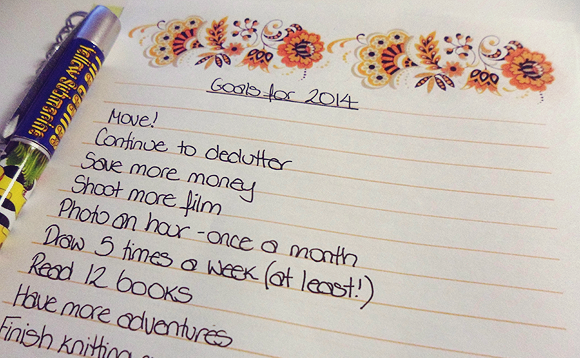 THE BEATLES
Yellow Submarine
Goals for 2014
Move!
Continue to declutter
Save more money
Shoot more film
Photo an hour - once a month
Draw 5 times a week (at least!)
Read 12 books
Have more adventures
Finish knitting